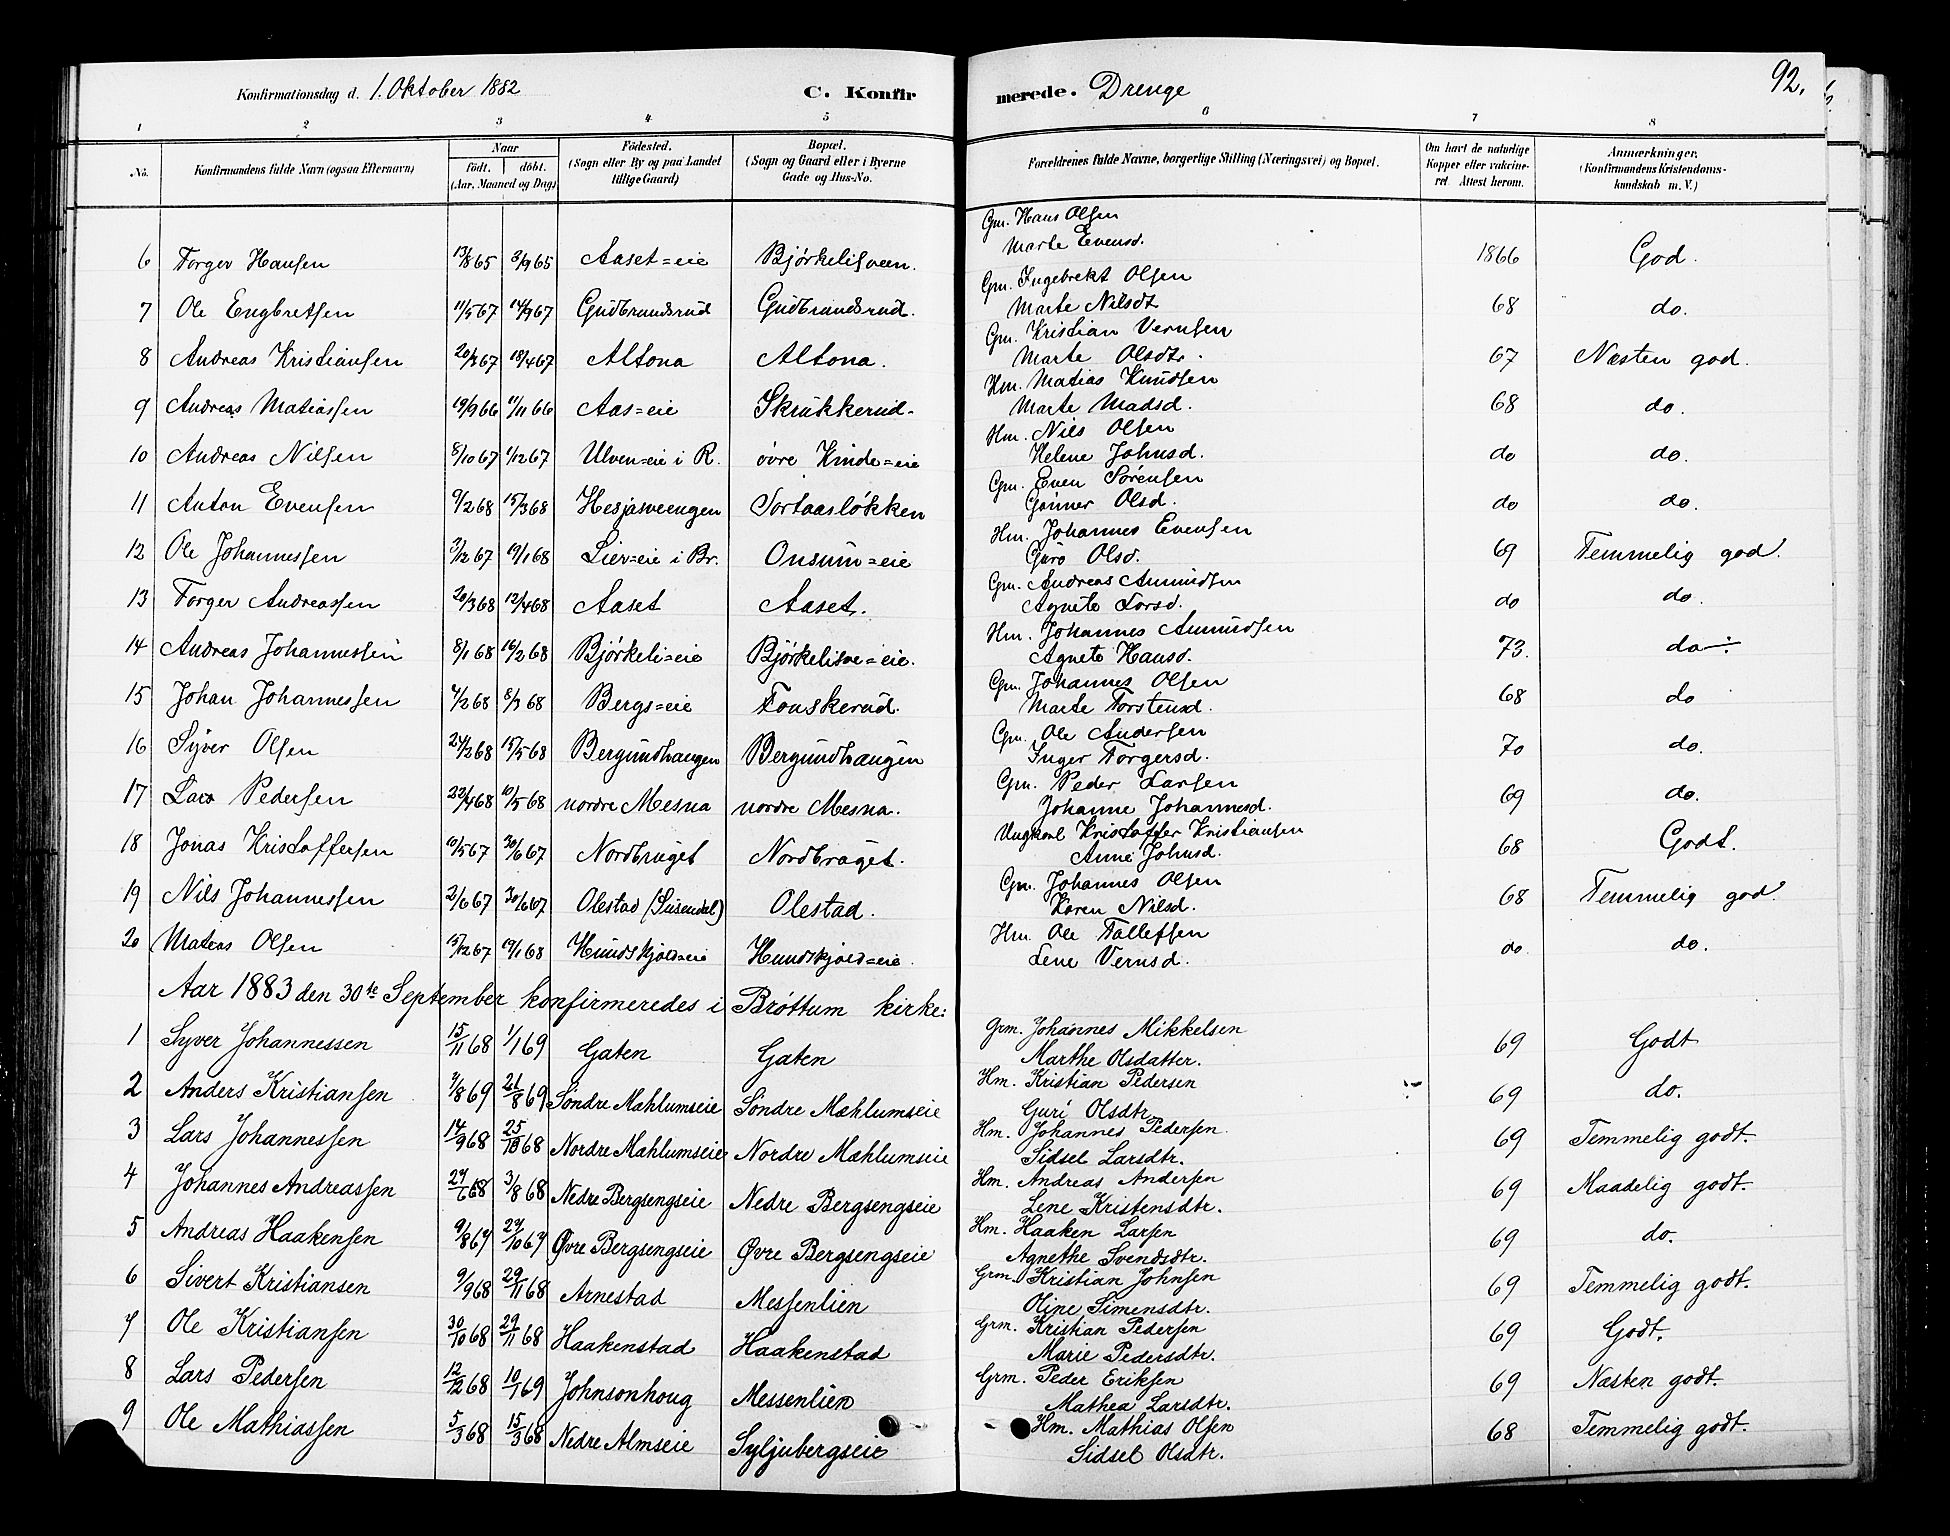 Konfirmationsdag d. 1. Oktober 1882 C. Konfir merede. Drenge 92.
1 2 3 4 5 6 7 8
No. Konfirmandens fulde Navn (ogsaa Efternavn) Naar födt. döbt. (Aar, Maaned og Dag) Födested. (Sogn eller By og paa Landet tillige Gaard) Bopæl. (Sogn og Gaard eller i Byerne Gade og Hus-No. Forældrenes fulde Navne, borgerlige Stilling (Næringsvei) og Bopæl. Om havt de naturlige Kopper eller vakcineret. Attest herom. Anmærkninger. (Konfirmandens Kristendomskundskab m. V.)
Gm. Hans Olsen
6 Torger Hansen 13/8 65 3/9 65 Aaset=eie Bjørkelisveen. Marte Evensd. 1866 God.
Gm. Ingebrekt Olsen
7 Ole Engbretsen 11/5 67 14/9 67 Gudbrandsrud Gudbrandsrud. Marte Nilsdt 68 do.
Gm. Kristian Vernsen
8 Andreas Kristiansen 20/3 67 18/4 67 Altona Altona. Marte Olsdtr. 67 Næsten god.
Hm. Matias Knudsen
9 Andreas Matiassen 19/9 66 11/11 66 Aas=eie Skrukkerud. Marte Madsd. 68 do.
Hm. Nils Olsen
10 Andreas Nilsen 8/10 67 1/12 67 Ulven=eie i R. øvre Kinde=eie Helene Johnsd. do do.
Gm. Even Sørensen
11 Anton Evensen 9/2 68 15/3 68 Hesjasveengen Tortaasløkken Gunner Olsd. do do.
Hm. Johannes Evensen
12 Ole Johannessen 2/12 67 19/1 68 Lier=eie i Br. Onsum=eie Guro Olsd. 69 Temmelig god.
Gm. Andreas Amundsen
13 Torger Andreassen 20/3 68 12/4 68 Aaset Aaset. Agnete Larsd. do do.
Hm. Johannes Amundsen
14 Andreas Johannessen 8/1 68 16/2 68 Bjørkeli=eie Bjørkelisve=eie. Agnete Hansd. 73. do
Gm. Johannes Olsen
15 Johan Johannessen 4/2 68 8/3 68 Bergs=eie Fouskerud. Marte Torstensd. 68 do
Gm. Ole Andersen
16 Syver Olsen 24/2 68 15/5 68 Bergundhaugen Bergundhaugen Inger Torgersd. 70 do.
Gm. Peder Larsen
17 Lars Pedersen 22/4 68 10/5 68 nordre Mesna nordre Mesna. Johanne Johannesd. 69 do.
Ungkarl Kristoffer Kristiansen
18 Jonas Kristoffersen 10/5 67 30/6 67 Nordbruget Nordbruget. Anne Johnsd. 68 Godt.
Gm. Johannes Olsen
19 Nils Johannessen 2/6 67 30/6 67 Olestad (Ludendal) Olestad. Karen Nilsd. 68 Temmelig god
Hm. Ole Tollefsen
20 Matias Olsen 15/12 67 19/1 68 Hundskjold=eie Hundskjold=eie. Lene Vernsd. do. do.
Aar 1883 den 30te September konfirmeredes i Brøttum kirke:
Grm. Johannes Mikkelsen
1 Syver Johannessen 15/11 68 1/1 69 Gaten Gaten Marthe Olsdatter. 69 Godt
Hm. Kristian Pedersen
2 Anders Kristiansen 7/8 69 21/8 69 Søndre Mæhlumseie Søndre Mæhlumseie Guri Olsdtr. 69 do.
Hm. Johannes Pedersen.
3 Lars Johannessen 14/9 68 25/10 68 Nordre Mæhlumseie Nordre Mæhlumseie Sidsel Larsdtr. 69 Temmelig godt.
Hm. Andreas Andersen
4 Johannes Andreassen 27/6 68 3/8 68 Nedre Bergsengseie Nedre Bergsengseie Lene Kristensdtr. 69 Maadelig godt.
Hm. Haaken Larsen
5 Andreas Haakensen 9/8 67 27/10 67 Øvre Bergsengseie Øvre Bergsengseie Agnethe Svendsdtr. 69 do.
Grm. Kristian Johnsen
6 Sivert Kristiansen 9/9 68 29/11 68 Arnestad Messenlien Oline Simensdtr. 69 Temmelig godt.
Grm. Kristian Pedersen
7 Ole Kristiansen 30/10 68 29/11 68 Haakenstad Haakenstad Marie Pedersdtr. 69 Godt.
Grm. Peder Eriksen
8 Lars Pedersen 12/12 68 10/1 69 Johnsonhoug Messenlien Mathea Larsdtr. 69 Næsten godt.
Hm. Mathias Olsen
9 Ole Mathiassen 5/3 68 15/3 68 Nedre Almseie Syljubergseie Sidsel Olsdtr. 68 Temmelig godt.